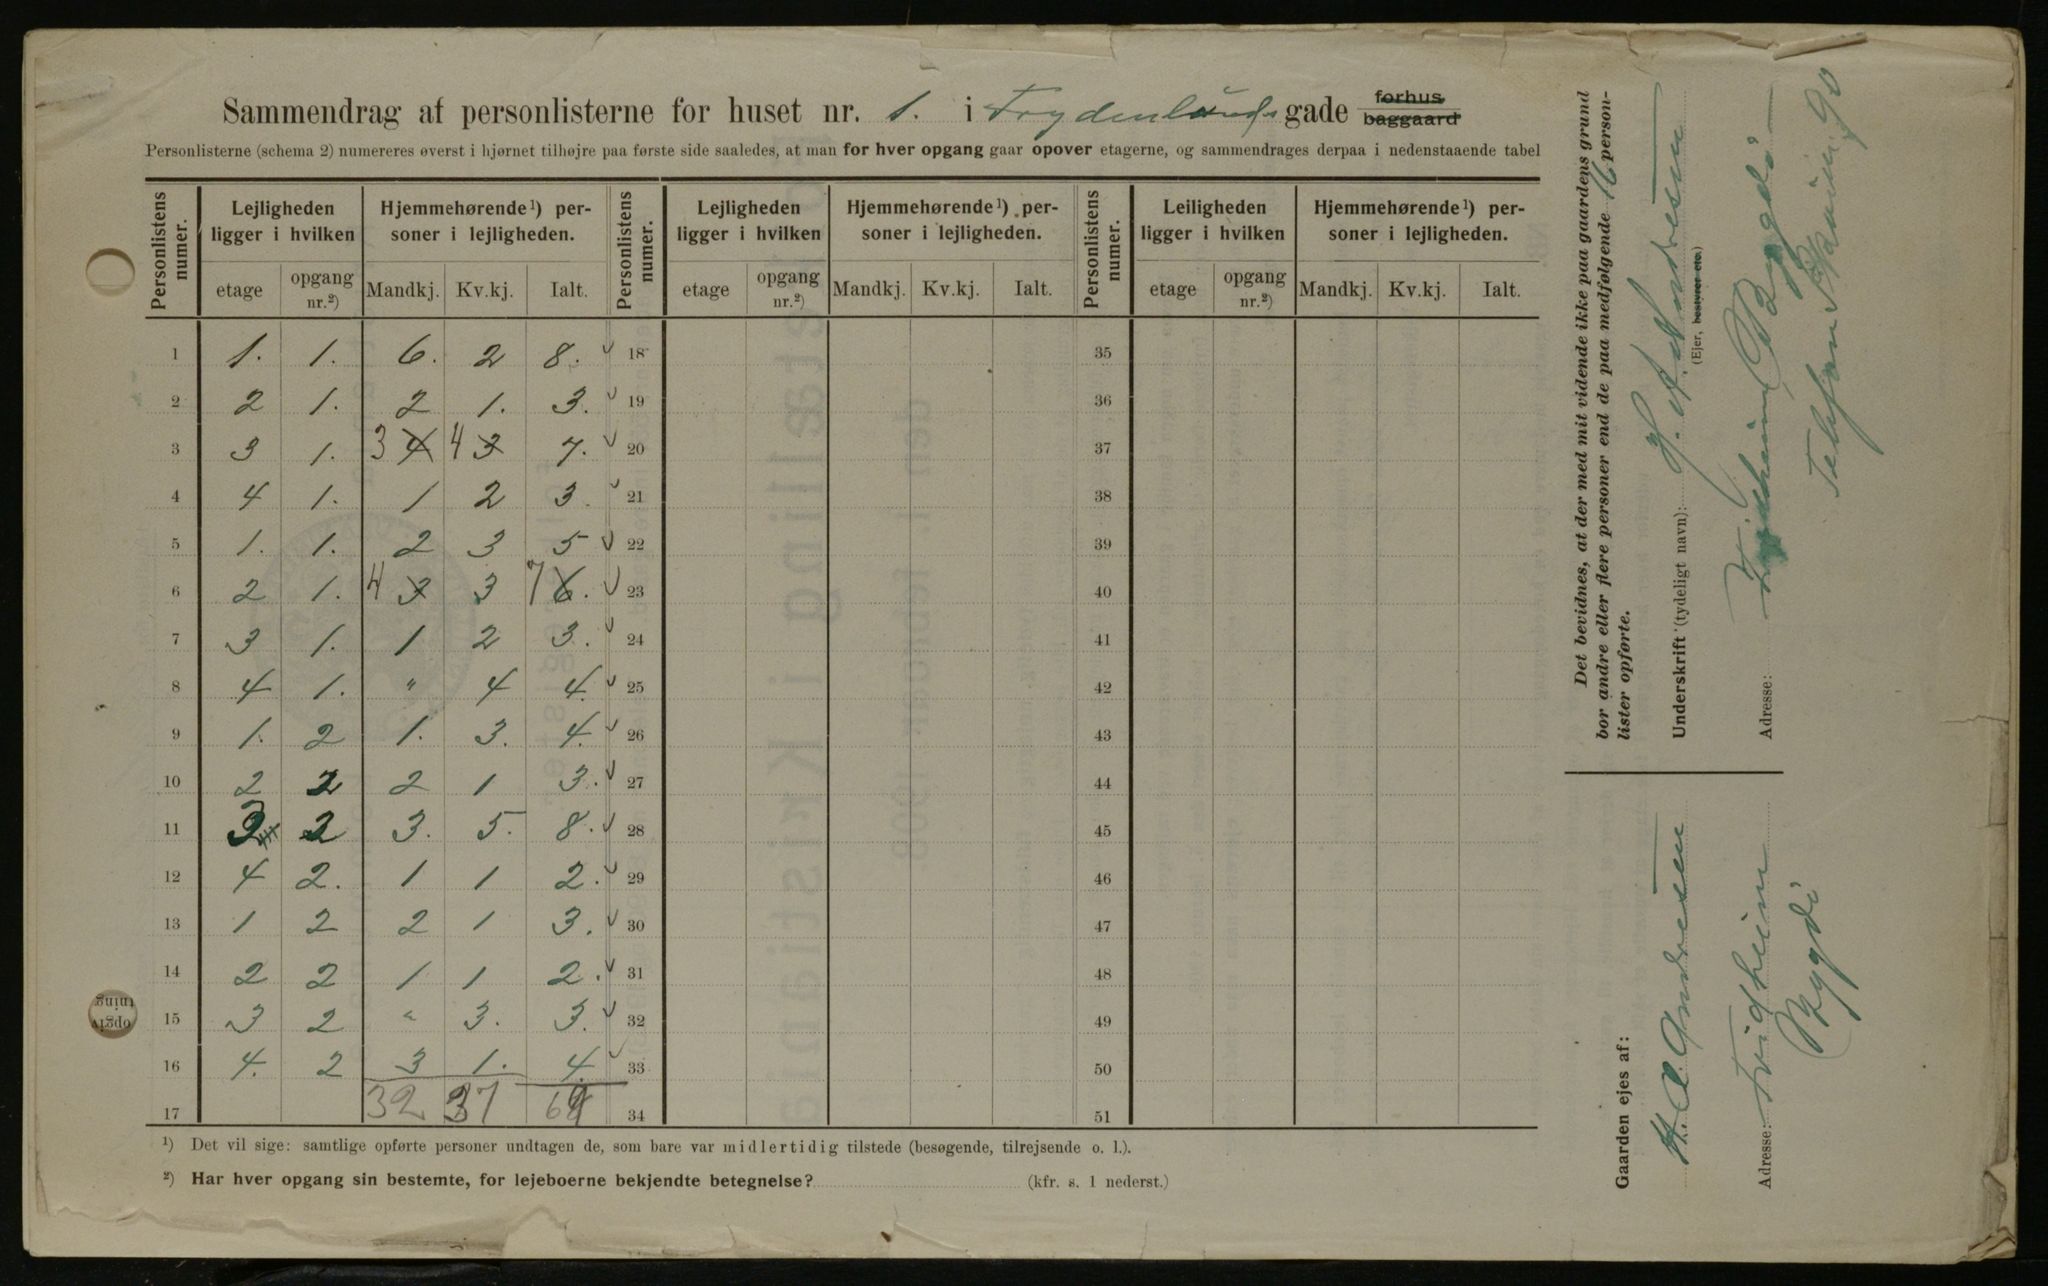 Sammendrag af personlisterne for huset nr. 1. i Frydenlunds gade forhus baggaard
Personlisterne (schema 2) numereres øverst i hjørnet tilhøjre paa første side saaledes, at man for hver opgang gaar opover etagerne, og sammendrages derpaa i nedenstaaende tabel
Personlistens numer. Lejligheden ligger i hvilken Hjemmehørende¹) personer i lejligheden. Personlistens numer. Lejligheden ligger i hvilken Hjemmehørende¹) personer i lejligheden. Personlistens numer. Leiligheden ligger i hvilken Hjemmehørende¹) personer i lejligheden.
etage opgang nr.²) Mandkj. Kv.kj. Ialt. etage opgang nr.²) Mandkj. Kv.kj. Ialt. etage opgang nr.²) Mandkj. Kv.kj. Ialt.
1 1. 1. 6. 2 8. 18 35
2 2 1. 2 1. 3. 19 36
3 3 1. 3 4 4 3 7. 20 37
4 4 1. 1 2 3. 21 38
5 1. 1. 2 3 5 22 39
6 2 1. 4 3 3 7 6. 23 40
7 3 1. 1 2 3. 24 41
8 4 1. " 4 4. 25 42
9 1. 2 1. 3. 4. 26 43
10 2 2 2 1 3. 27 44
11 3 2 3. 5. 8. 28 45
12 4 2. 1 1 2. 29 46
13 1 2 2 1 3. 30 47
14 2 2 1 1 2. 31 48
15 3 2 " 3. 3. 32 49
16 4. 2 3 1. 4. 33 50
17 32 37 69 34 51
¹) Det vil sige: samtlige opførte personer undtagen de, som bare var midlertidig tilstede (besøgende, tilrejsende o. l.).
²) Har hver opgang sin bestemte, for lejeboerne bekjendte betegnelse? (kfr. s. 1 nederst.)
Det bevidnes, at der med mit vidende ikke paa gaardens grund
bor andre eller flere personer end de paa medfølgende 16 person-
lister opførte.
Underskrift (tydeligt navn): H. A. Andresen
(Ejer, bestyrer etc.)
Adresse: Bygdø
Telefon 90
Gaarden ejes af:
H. A. Andresen
Adresse: Fridheim
Bygdø
opgiv-
ning